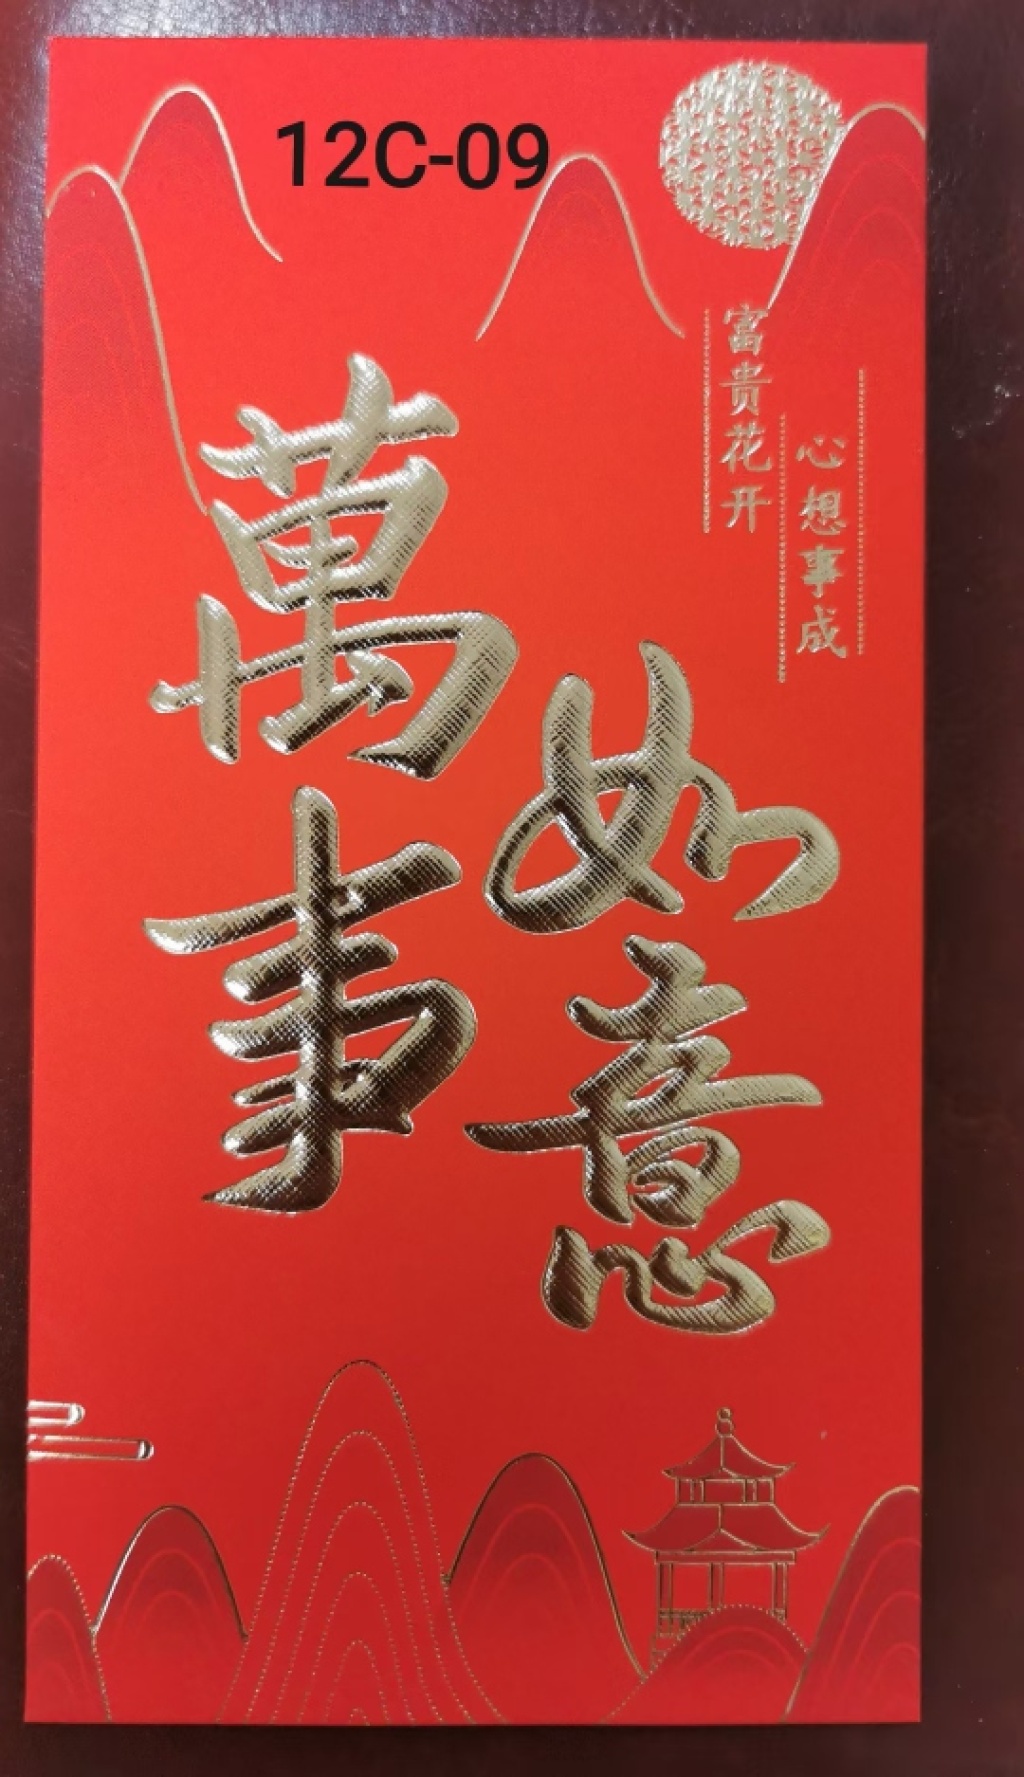 12C-09
富贵花开
心想事成
萬事
如意